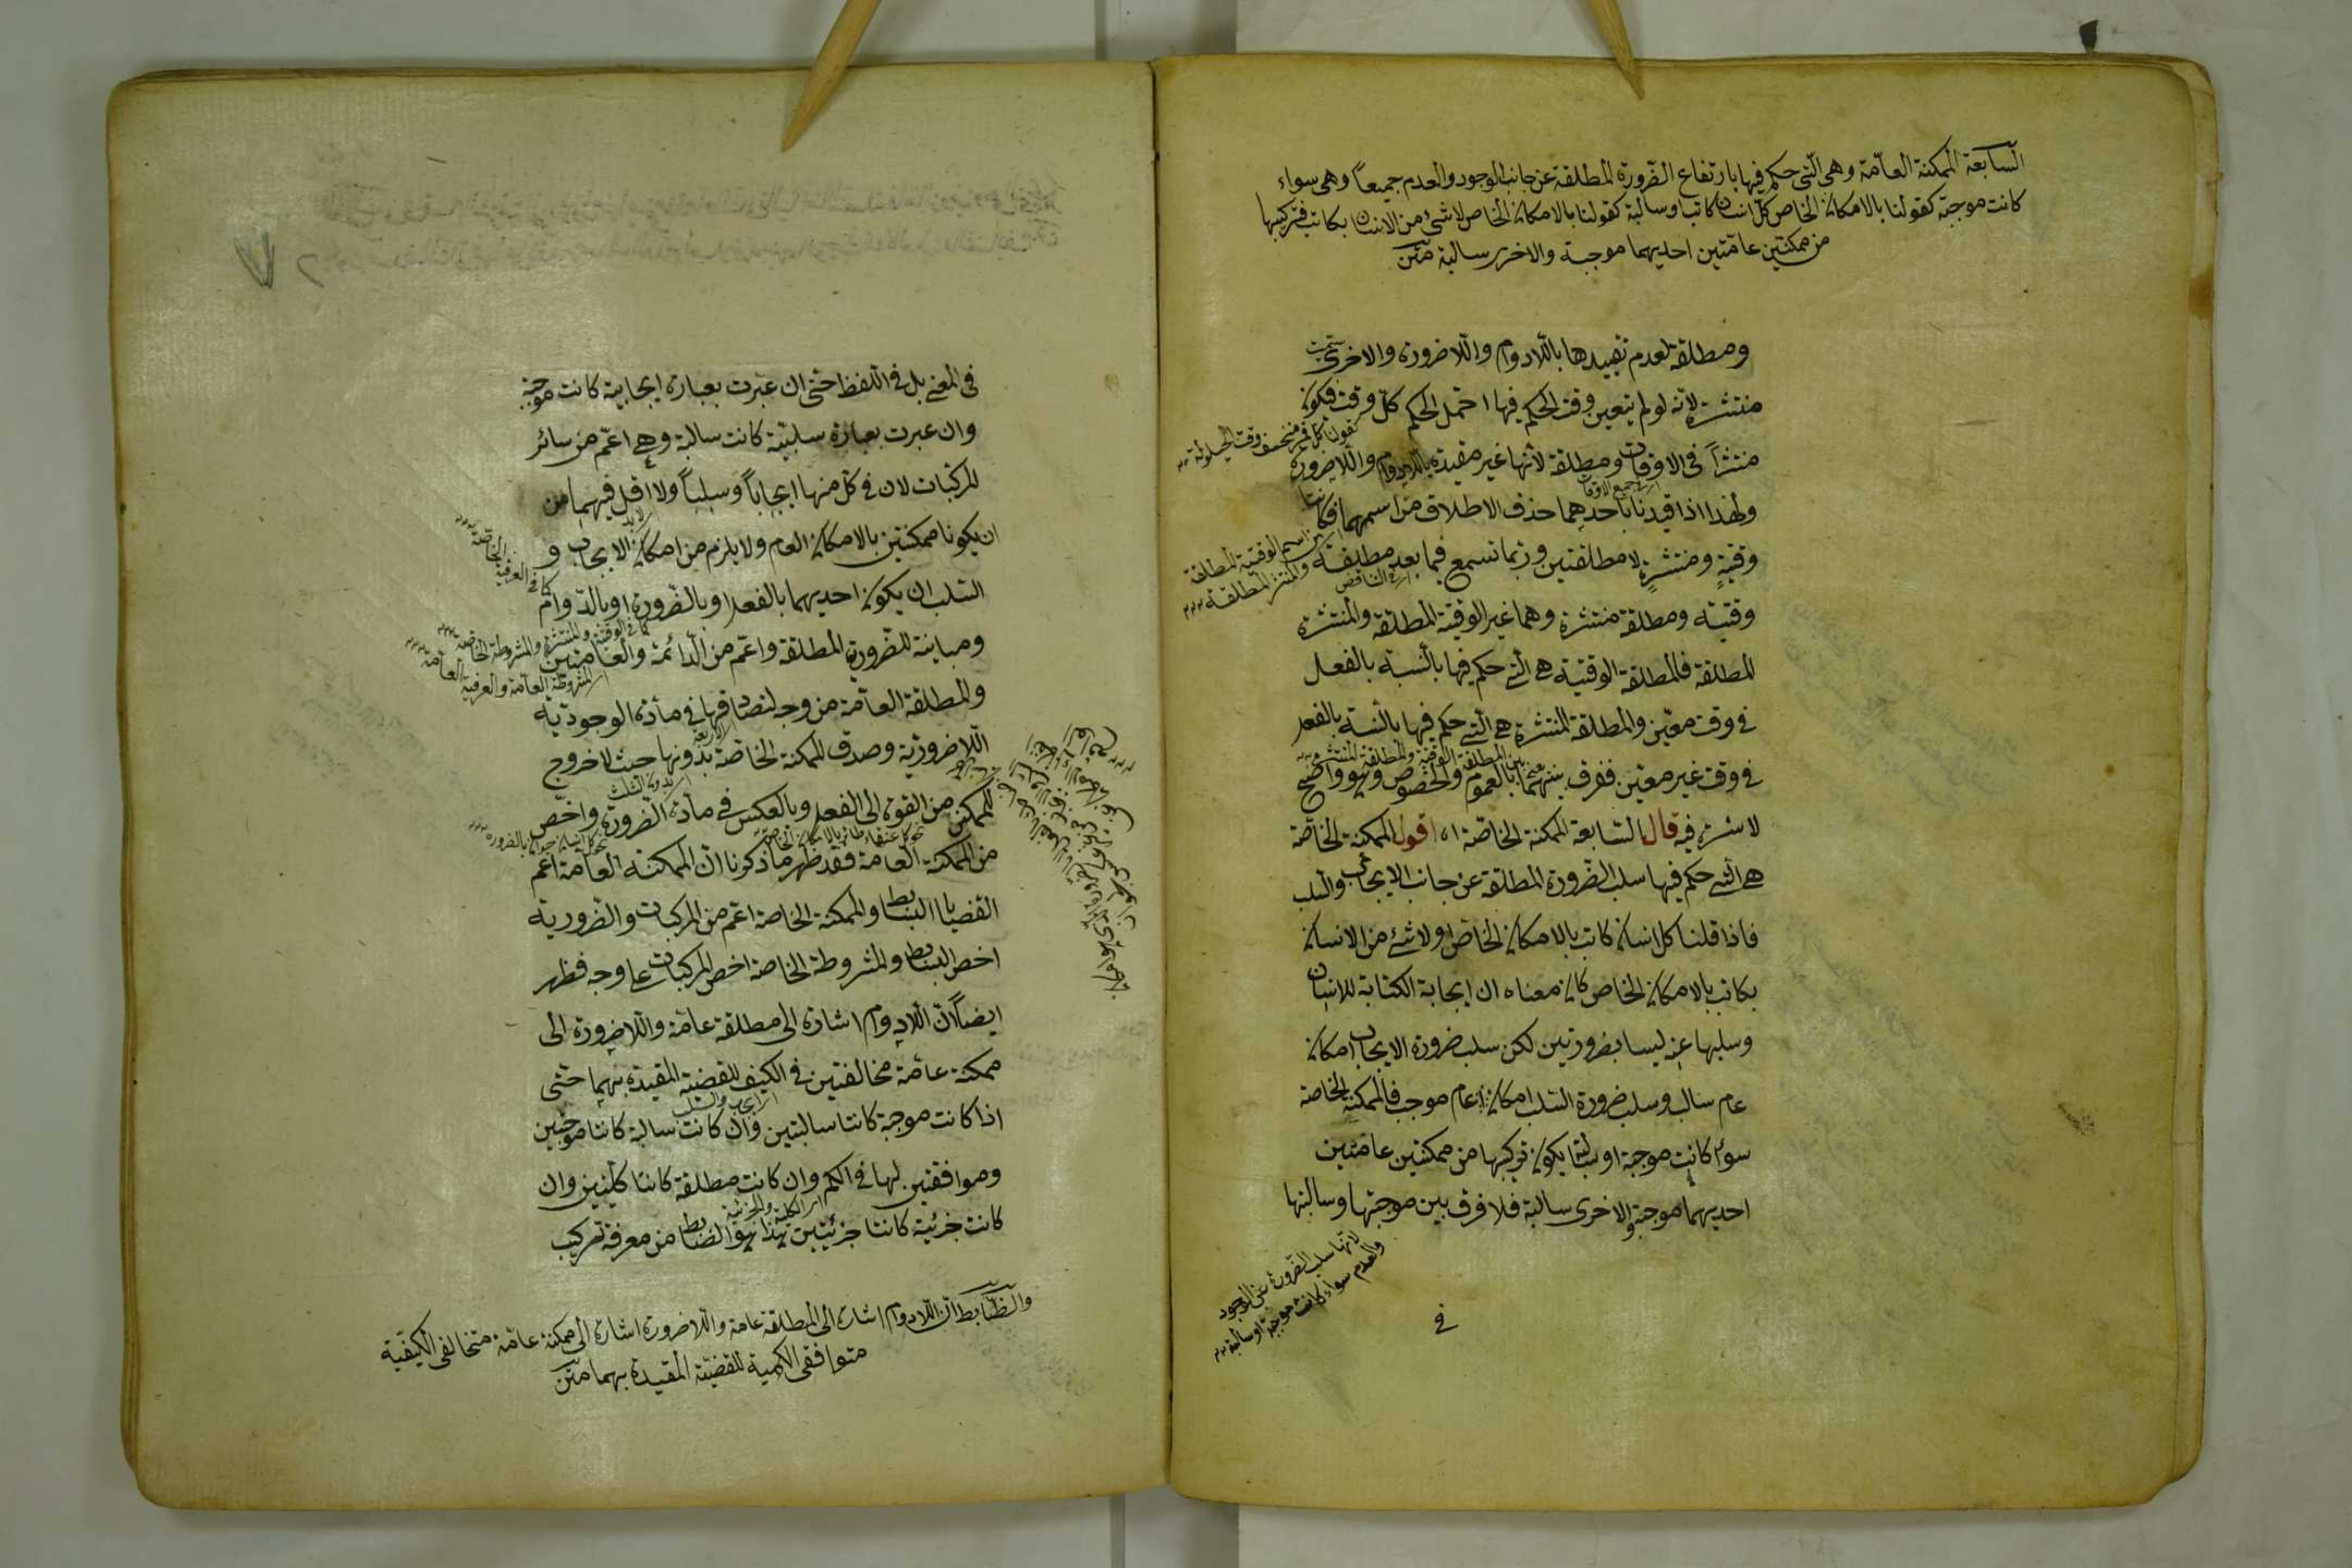 السابعة الممكنة العامة وهى الّتى حكم فيها بارتفاع الضّرورة المطلقة عن جانب الوجود والعدم جميعاً وهى سواء
كانت موجبة كقولنا بالامكان الخاص كلّ انسان كاتب او سالبة كقولنا بالامكان الخاص لا شئ من الانسان بكاتب فتركيبها
من ممكنتين عامّتين احديهما موجبة والاخرى سالبة متن
ومطلقة لعدم تقييدها باللّادوام واللّاضرورة والاخرى
منتشرة لانّه لو لم يتعين وقت الحكم فيها احتمل الحكم كلّ وقت فكون
منتشراً فى الاوقات ومطلقة لانّها غير مقيدة باللّادوام واللّاضرورة
كقولنا كل قمر منخسف وقت الحيلولة
ولهذا اذا قيدنا باحدهما حذف الاطلاق من اسمهما فكانت
وقتية ومنتشرة لا مطلقتين وربما تسمع فيما بعد مطلقة
وقتيّه ومطلقة منتشرة وهما غير الوقتية المطلقة والمنتشرة
المطلقة فالمطلقة الوقتيّة هى الّتى حكم فيها بالنّسبة بالفعل
فى وقت معيّن والمطلقة المنتشرة هى الّتى حكم فيها بالنّسبة بالفعل
بين المطلقة الوقتية والمطلقة المنتشرة
فى وقت غير معيّن ففرق بينهما بالعموم والخصوص وهو واضح
لا سترة فيه قال السّابعة الممكنة الخاصّة اه اقول الممكنة الخاصّة
هى الّتى حكم فيها سلب الضّرورة المطلقة عن جانب الايجاب والسّلب
فاذا قلنا كل انسان كاتب بالامكان الخاص او لا شئ من الانسان
بكاتب بالامكان الخاص كان معناه ان ايجابة الكتابة للانسان
وسلبها عنه ليسا بضروريّين لكن سلب ضرورة الايجاب امكان
عام سالب وسلب ضرورة السّلب امكان عام موجب فالممكنة الخاصة
سواء كانت موجبة او سالبة يكون تركيبها من ممكنتين عامّتين
احديهما موجبة والاخرى سالبة فلا فرق بين موجبتها وسالبتها
لانّها سلب الضّرورة عن الوجود
والعدم سواء كانت موجبة او سالبة
فى
فى المعنى بل فى اللّفظ حتّى ان عبّرت بعبارة ايجابية كانت موجبة
وان عبرت بعبارة سلبيّة كانت سالبة وهى اعمّ من سائر
المركّبات لان فى كل منها ايجاباً وسلباً ولا اقل فيهما من
ان يكونا ممكنتين بالامكان العام ولا يلزم من امكان الايجاب و
السّلب ان يكون احديهما بالفعل او بالضّرورة او بالدّوام
كما فى العرفية الخاصّة
كما فى الوقتية والمنتشرة والمشروطة الخاصة
ومباينة للضّرورية المطلقة واعمّ من الدّائمة والعامّتين
المشروطة العامّة والعرفية العامّة
والمطلقة العامّة من وجه لتصادقها فى مادّة الوجوديّة
اللّاضروريّة وصدق الممكنة الخاصّة بدونها حيث لا خروج
للممكن من القوة الى الفعل وبالعكس فى مادّة الضّرورة واخصّ
من الممكنة العامة فقد ظهر ممّا ذكرنا انّ الممكنة العامّة اعم
القضايا البسائط والممكنة الخاصة اعمّ من المركبات والضّرورية
اخص البسائط والمشروطة الخاصة اخص المركبات على وجه فظهر
ايضاً انّ اللّادوام اشارة الى مطلقة عامّة واللّاضرورة الى
ممكنة عامّة مخالفتين فى الكيف للقضيّة المقيدة بهما حتّى
اى الايجاب والسّلب
اذا كانت موجبة كانتا سالبتين وان كانت سالبة كانتا موجبتين
وموافقتين لها فى الكم وان كانت مطلقة كانتا كليّتين وان
اى الكليّة والجزئيّة
كانت جزئيّة كانتا جزئيّتين هذا هو الضّابط من معرفة تركيب
والضّابط انّ اللّادوام اشارة الى المطلقة عامة واللّاضرورة اشارة الى ممكنة عامّة متخالفى الكيفيّة
متوافقى الكميّة للقضيّة المقيدة بهما متن